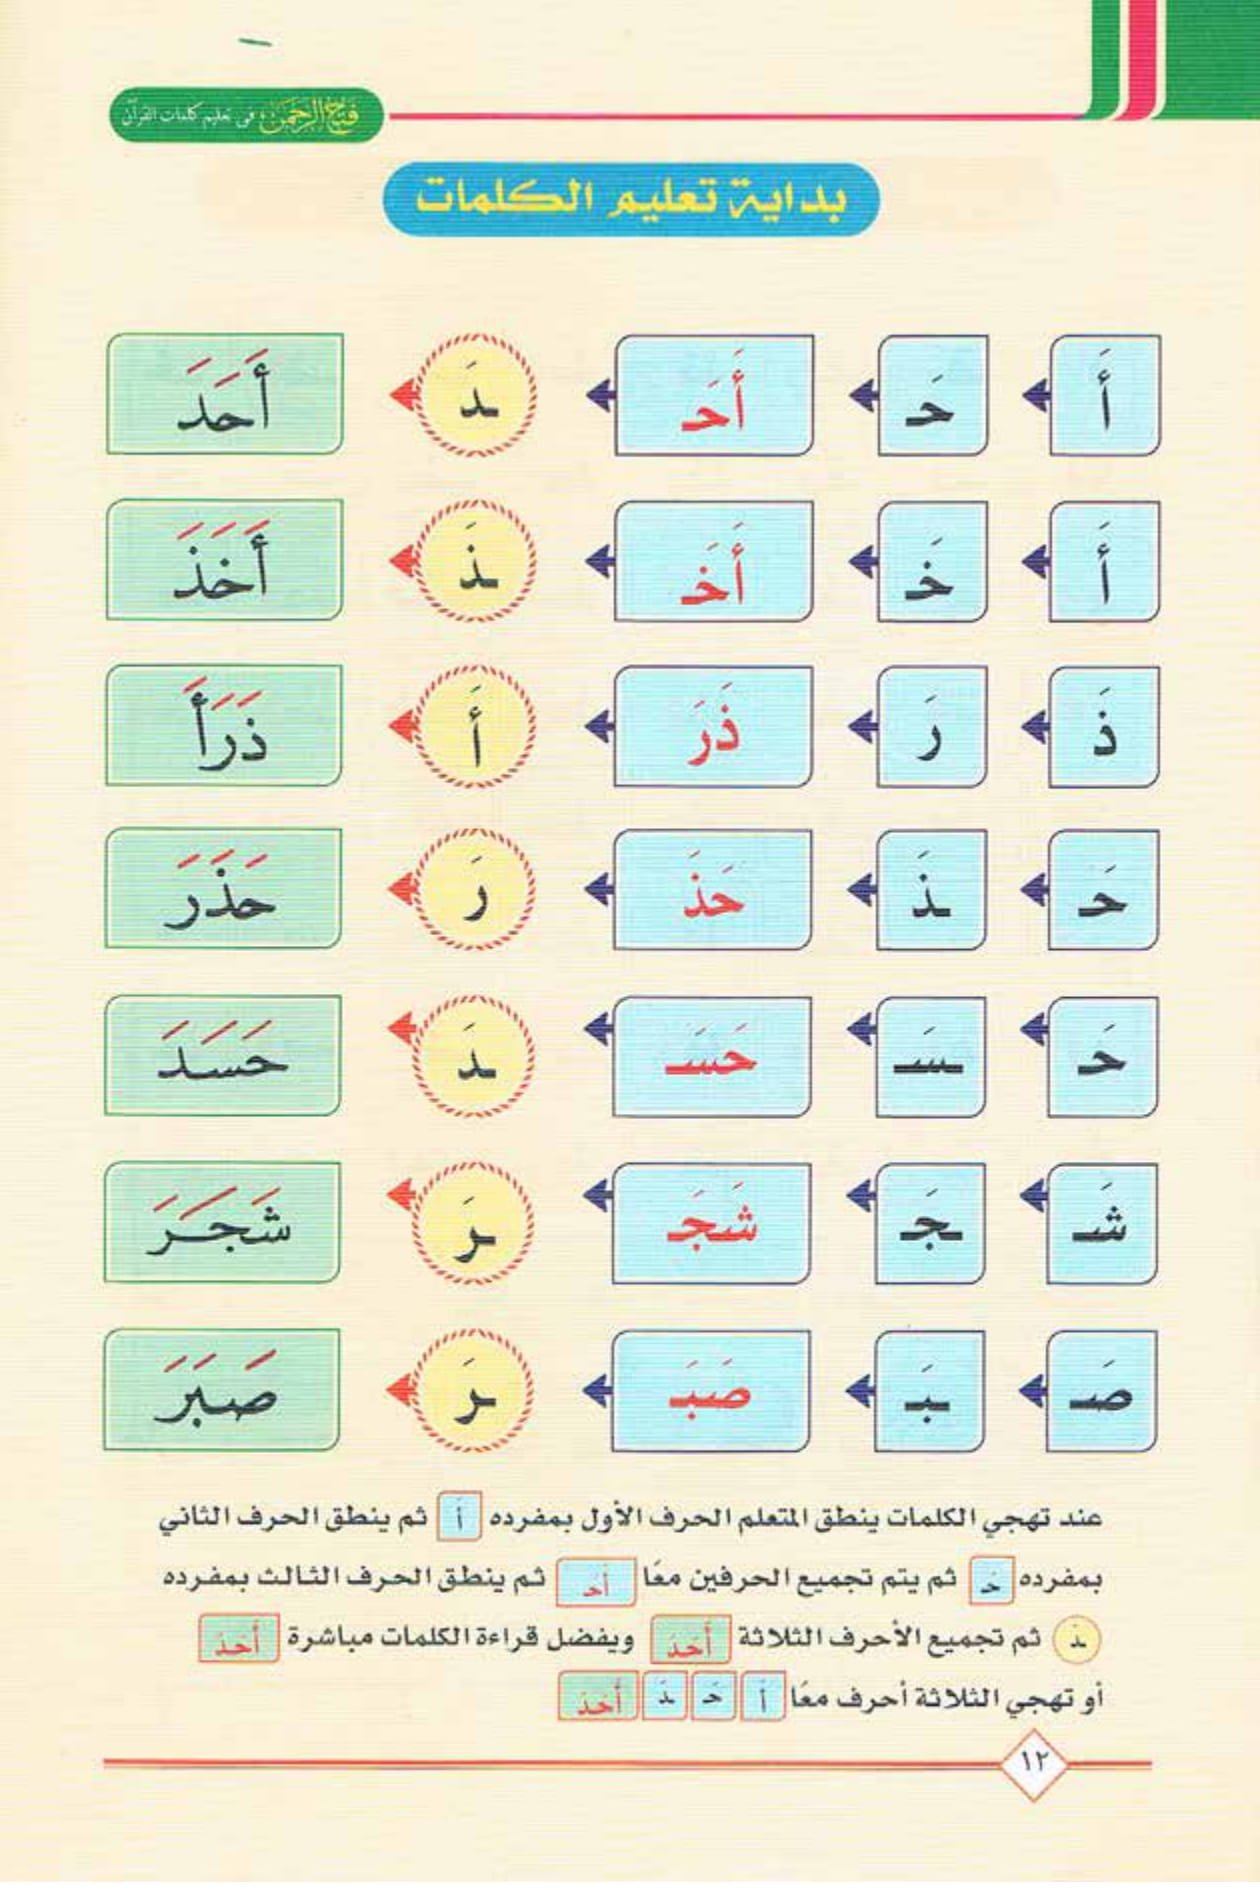 فتح الرحمن في تعليم كلمات القرآن
بداية تعليم الكلمات
أَ حَـ أَحَـ ـدَ أَحَدَ
أَ خَـ أَخَـ ـذَ أَخَذَ
ذَ رَ ذَرَ أَ ذَرَأَ
حَـ ـذَ حَذَ رَ حَذَرَ
حَـ ـسَـ حَسَـ ـدَ حَسَدَ
شَـ ـجَـ شَجَـ ـرَ شَجَرَ
صَـ ـبَـ صَبَـ ـرَ صَبَرَ
عند تهجي الكلمات ينطق المتعلم الحرف الأول بمفرده أَ ثم ينطق الحرف الثاني
بمفرده حَـ ثم يتم تجميع الحرفين معًا أَحَـ ثم ينطق الحرف الثالث بمفرده
ـدَ ثم تجميع الأحرف الثلاثة أَحَدَ ويفضل قراءة الكلمات مباشرة أَحَدَ
أو تهجي الثلاثة أحرف معًا أَ حَـ ـدَ أَحَدَ
١٢